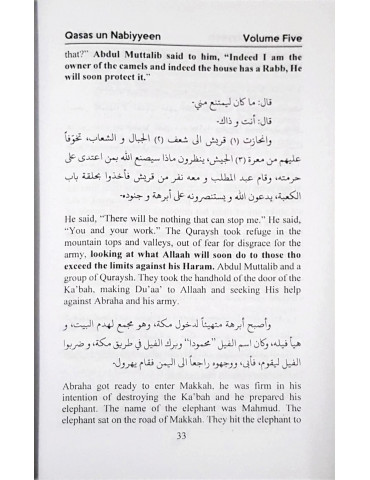 Qasas un Nabiyyeen Volume Five
that?" Abdul Muttalib said to him, "Indeed I am the
owner of the camels and indeed the house has a Rabb, He
will soon protect it."
قال: ما كان ليمتنع مني.
قال: أنت و ذاك.
وانحازت (١) قريش الى شعف (٢) الجبال و الشعاب، تخوّفاً
عليهم من معرة (٣) الجيش، ينظرون ماذا سيصنع الله بمن اعتدى على
حرمته، وقام عبد المطلب و معه نفر من قريش فأخذوا بحلقة باب
الكعبة، يدعون الله و يستنصرونه على أبرهة و جنوده.
He said, "There will be nothing that can stop me." He said,
"You and your work." The Quraysh took refuge in the
mountain tops and valleys, out of fear for disgrace for the
army, looking at what Allaah will soon do to those tho
exceed the limits against his Haram. Abdul Muttalib and a
group of Quraysh. They took the handhold of the door of the
Ka'bah, making Du'aa' to Allaah and seeking His help
against Abraha and his army.
وأصبح أبرهة متهيئاً لدخول مكة، وهو مجمع لهدم البيت، و
هيأ فيله، وكان اسم الفيل "محمودا" وبرك الفيل في طريق مكة، و ضربوا
الفيل ليقوم، فأبى، ووجهوه راجعاً الى اليمن فقام يهرول.
Abraha got ready to enter Makkah, he was firm in his
intention of destroying the Ka'bah and he prepared his
elephant. The name of the elephant was Mahmud. The
elephant sat on the road of Makkah. They hit the elephant to
33